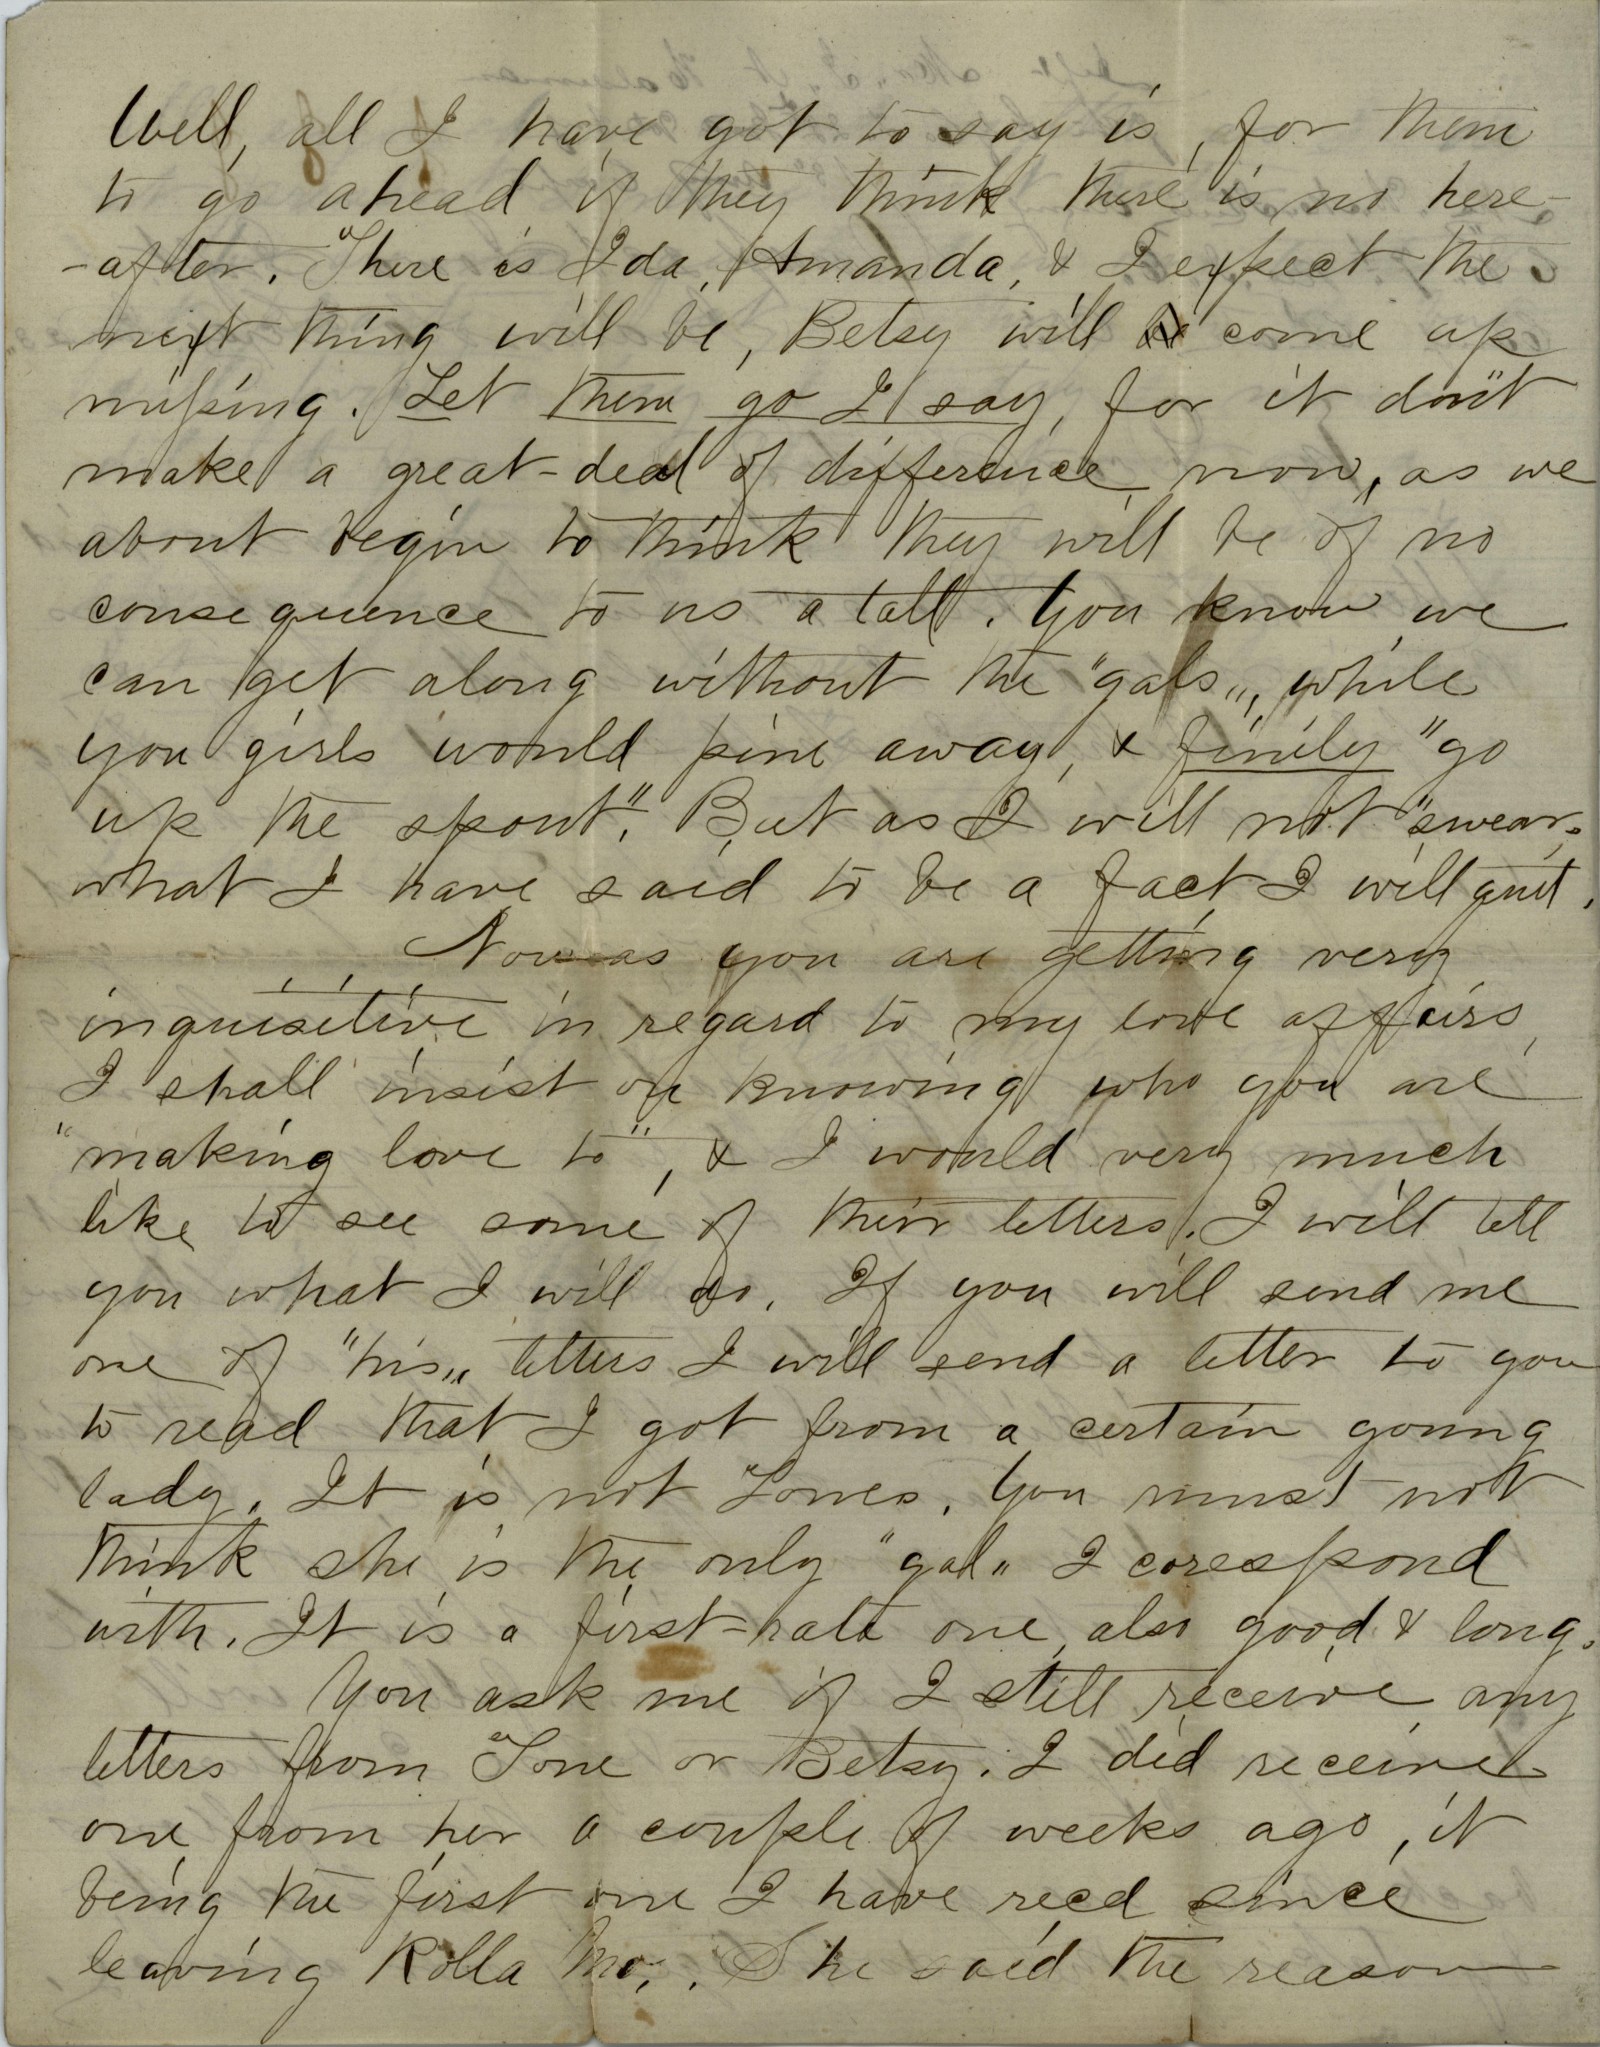 Well, all I have got to say is, for them
to go ahead if they think there is no here-
-after. There is Ida, Amanda, & I expect the
next thing will be, Betsy will be come up
missing. Let them go I say, for it dont
make a great-deal of difference now, as we
about begin to think they will be of no
consequence to us a tall. You know we
can get along without the "gals", while
you girls would pine away, & finily "go
up the spout". But as I will not "swear"
what I have said to be a fact I will quit.
Now as you are getting very
inquisitive in regard to my love affairs,
I shall insist on knowing who you are
"making love to", & I would very much
like to see some of their letters. I will tell
you what I will do. If you will send me
one of "his" letters I will send a letter to you
to read that I got from a certain young
lady. It is not Tones. You must not
think she is the only "gal" I corespond
with. It is a first-rate one, also good & long.
You ask me if I still receive any
letters from Tone or Betsy. I did receive
one from her a couple of weeks ago, it
being the first one I have recd since
leaving Rolla Mo,. She said the reason